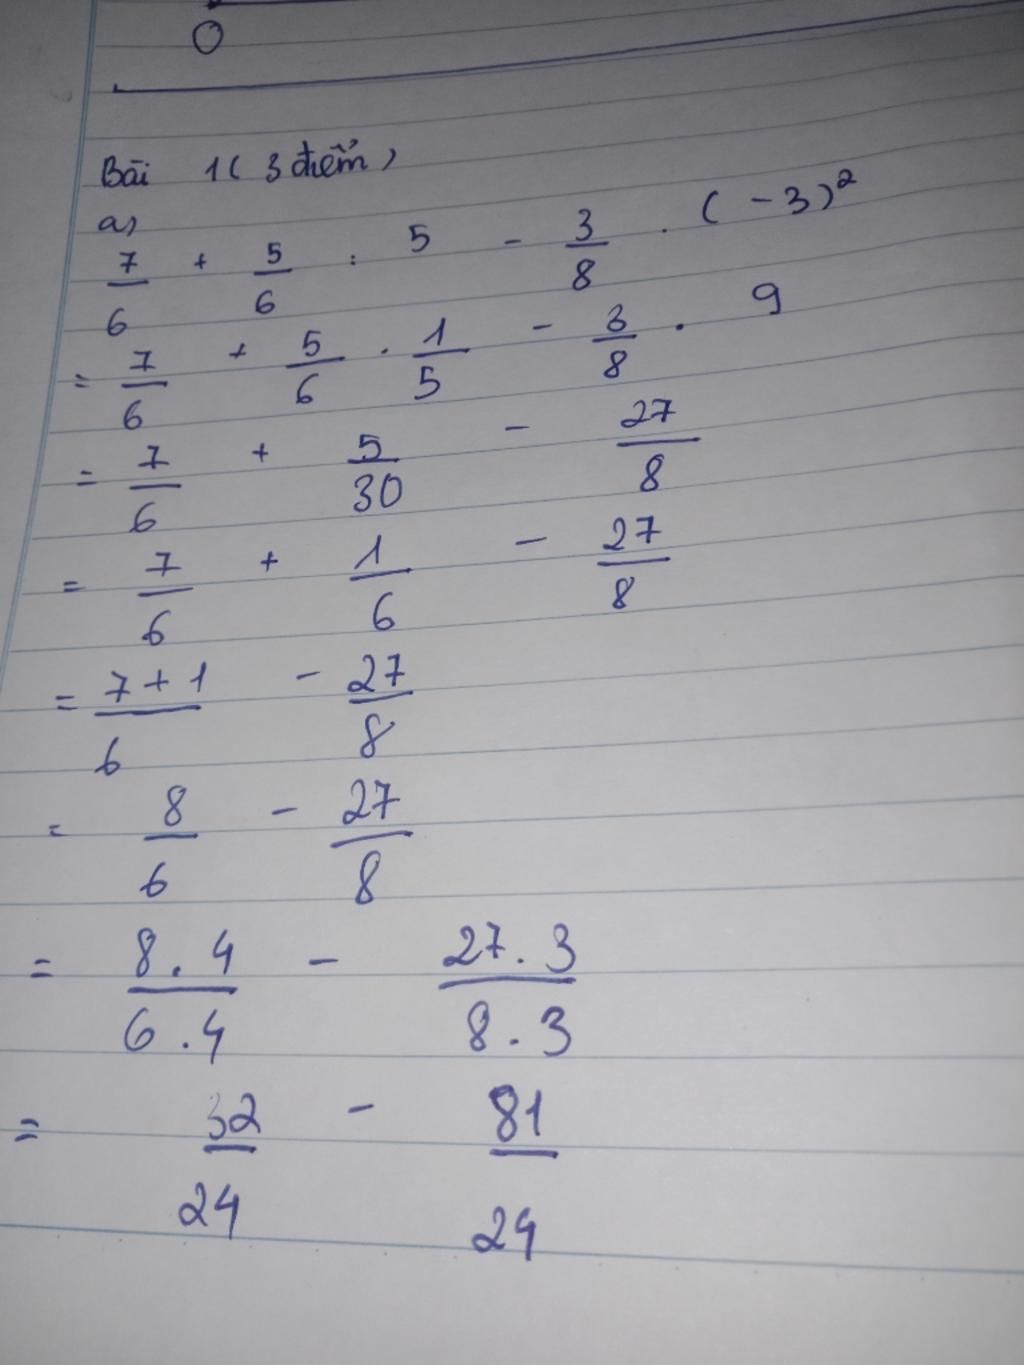 Bài 1( 3 điểm)
a)
7/6 + 5/6 : 5 - 3/8 . ( -3)²
= 7/6 + 5/6 . 1/5 - 3/8 . 9
= 7/6 + 5/30 - 27/8
= 7/6 + 1/6 - 27/8
= 7+1/6 - 27/8
= 8/6 - 27/8
= 8.4/6.4 - 27.3/8.3
= 32/24 - 81/24